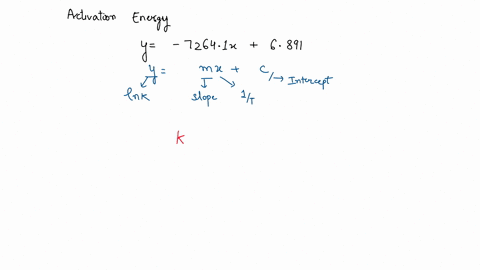 Activation Energy
y= -7264.1x + 6.891
y = mx + c → Intercept
lnk slope 1/T
k